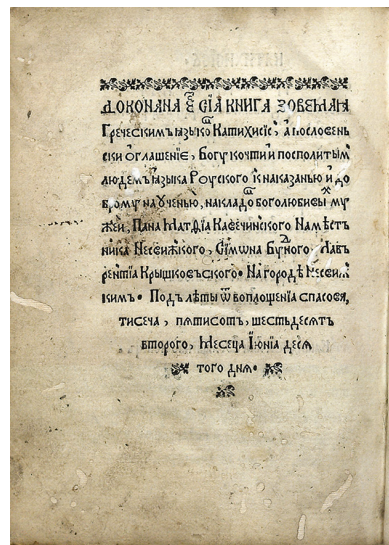 Доконана е҃ сиꙗ книга зовемаꙗ
Греческимъ ꙗзыкоⷨ Катихисіс, а пословень
ски оглашеніе, Богу кочти и посполитыⷨ
людемъ ꙗзыка Роуского к наказанью и до
брому наученью, накладоⷨ боголюбивыⷯ му
жей, Пана Матѳіꙗ Кавечинского Намѣст
ника Несвижского, Сімѡна Буⷣного. Лав
рентіꙗ Крышковъского. На городѣ Несвиж
скимъ. Подъ лѣты ѿ воплощеніꙗ спасовꙗ,
тисеча, пѧтисотъ, шестьдесѧтъ
второго, Месеца Іюніꙗ десꙗ
того днꙗ.